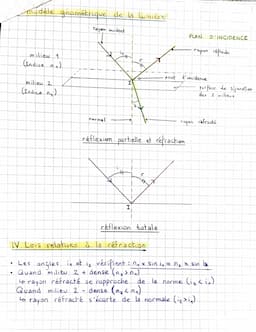 modèle géométrique de la lumière
rayon incident
PLAN D'INCIDENCE
rayon réfléchi
milieu 1
(Indice n₁)
I
point d'incidence
milieu 2
(Indice n₂)
surface de séparation
des 2 milieux
normal
rayon réfracté
réflexion partielle et réfraction
I
réflexion totale
IV Lois relatives à la réfraction
• Les angles i₁ et i₂ vérifient : n₁ x sin i₁ = n₂ x sin i₂
• Quand milieu 2 + dense (n₂ > n₁)
↳ rayon réfracté se rapproche de la norme (i₂ < i₁)
Quand milieu 2 - dense (n₂ < n₁)
↳ rayon réfracté s'écarte de la normale (i₂ > i₁)